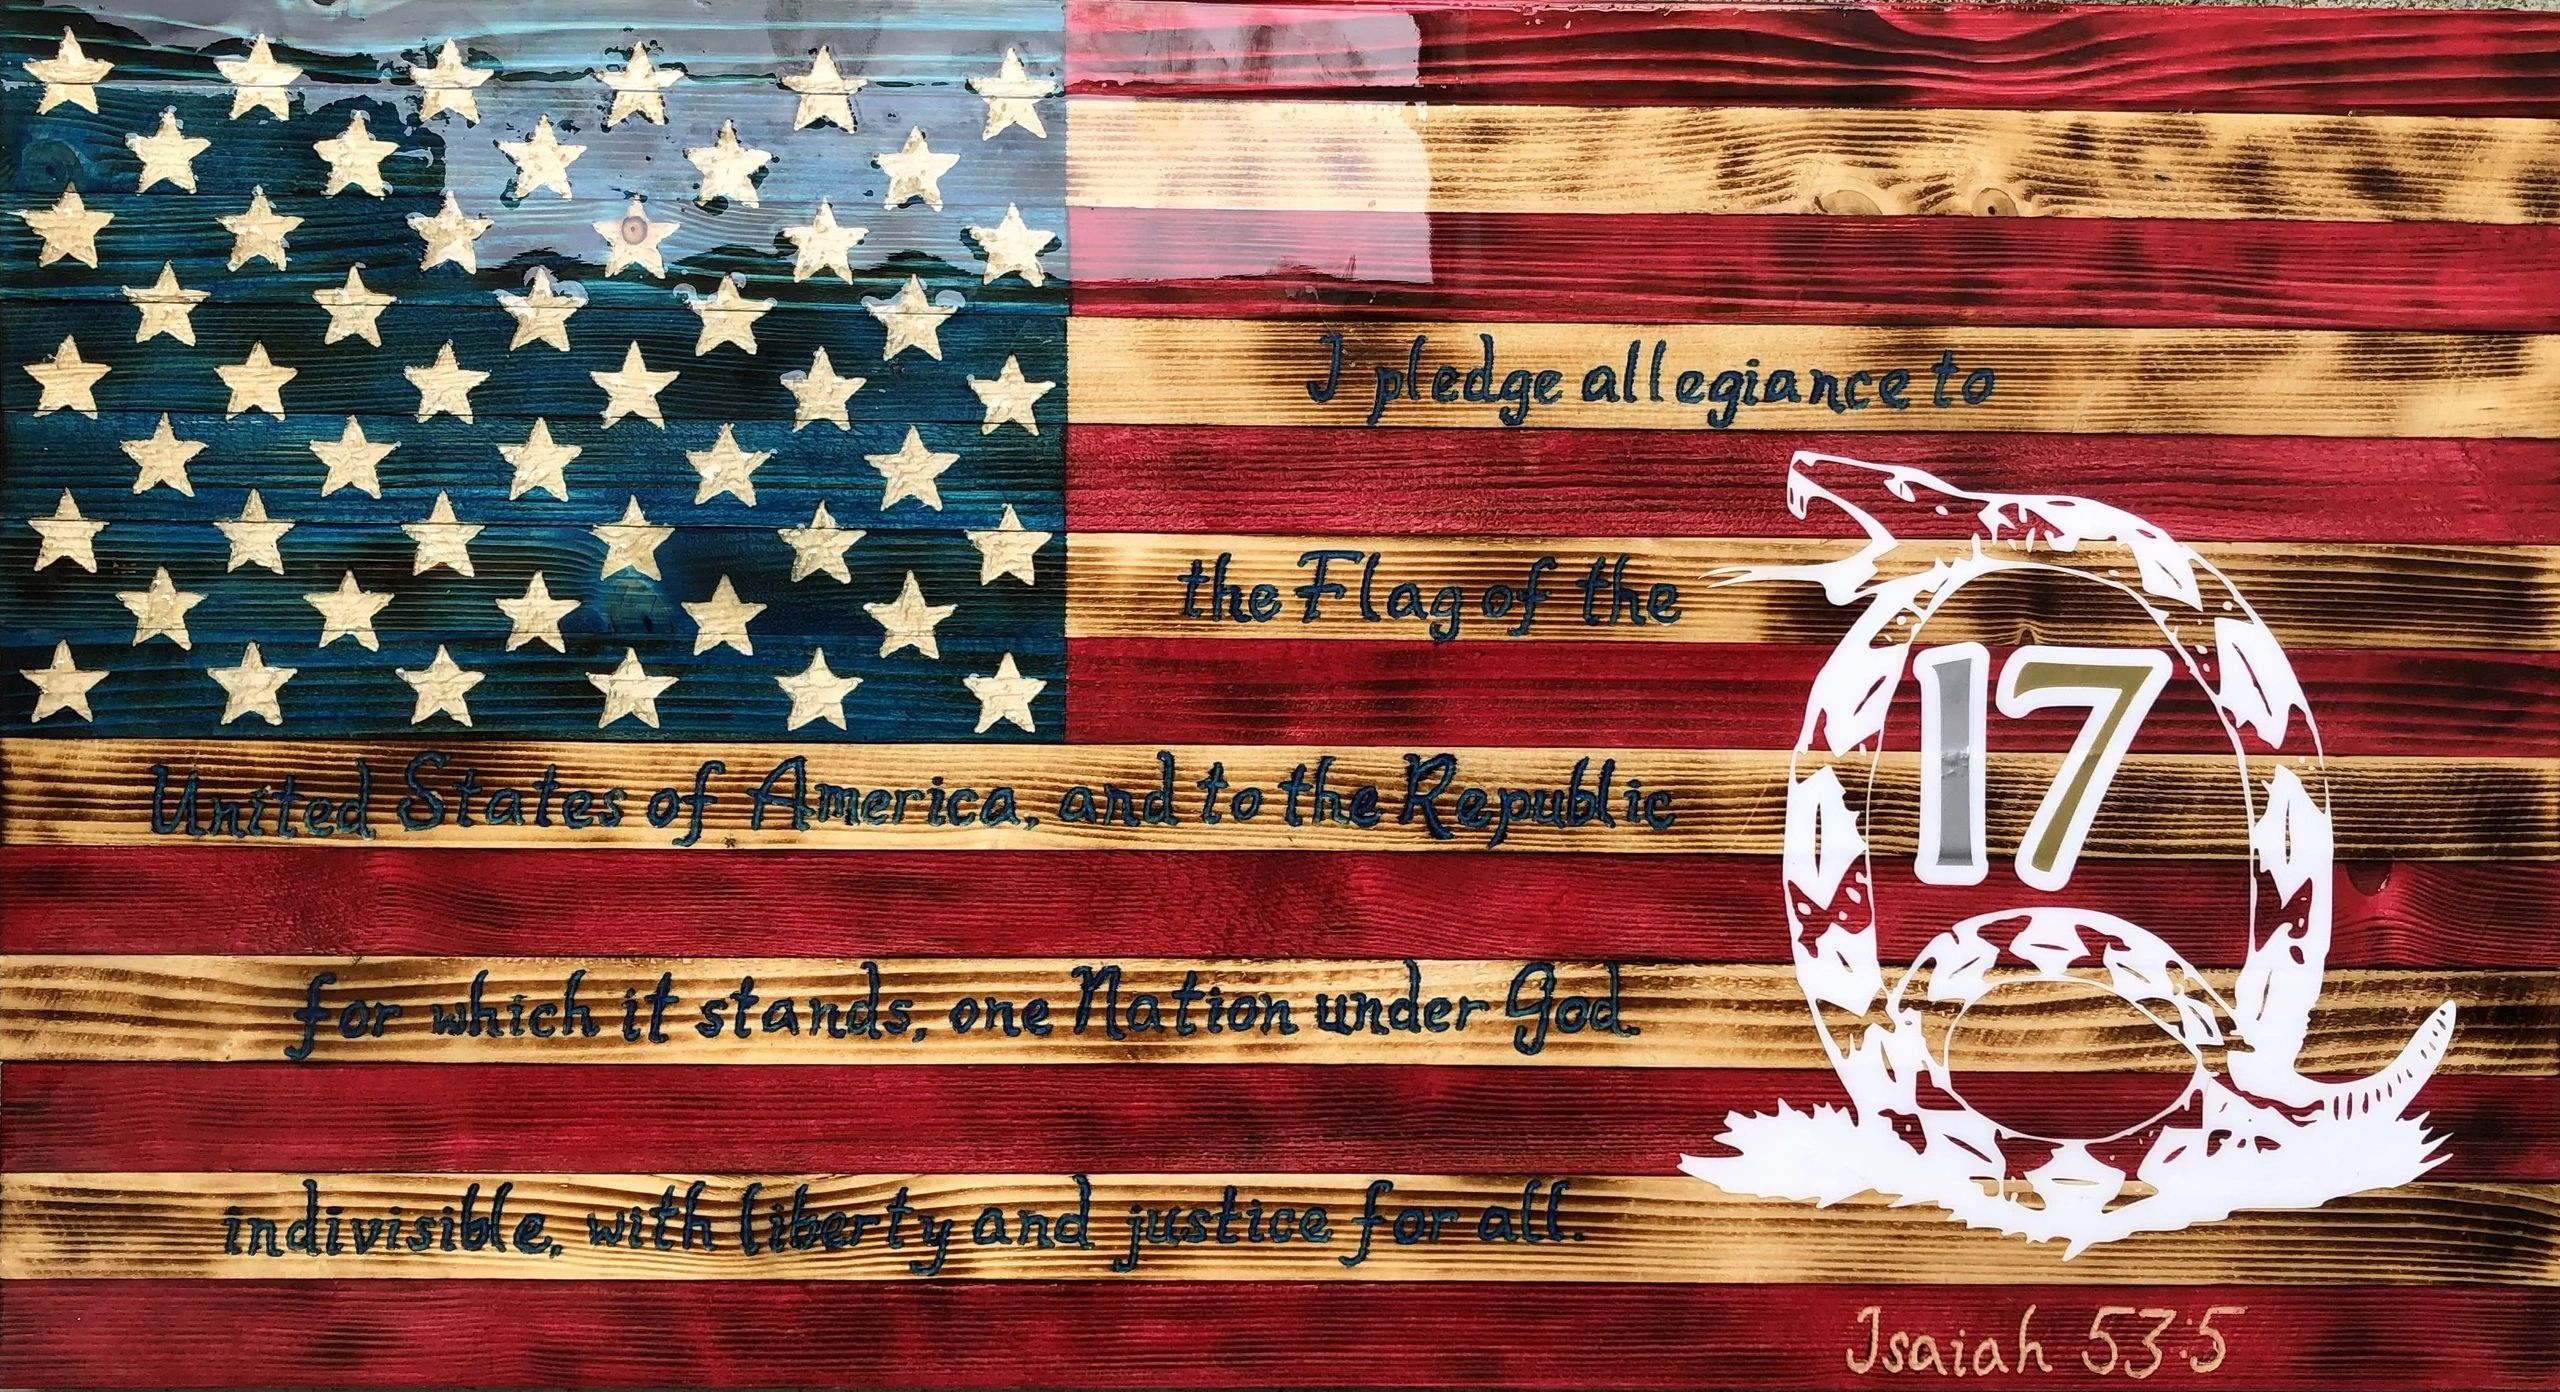 I pledge allegiance to
the Flag of the
17
United States of America, and to the Republic
for which it stands, one Nation under God.
indivisible, with liberty and justice for all.
Isaiah 53:5